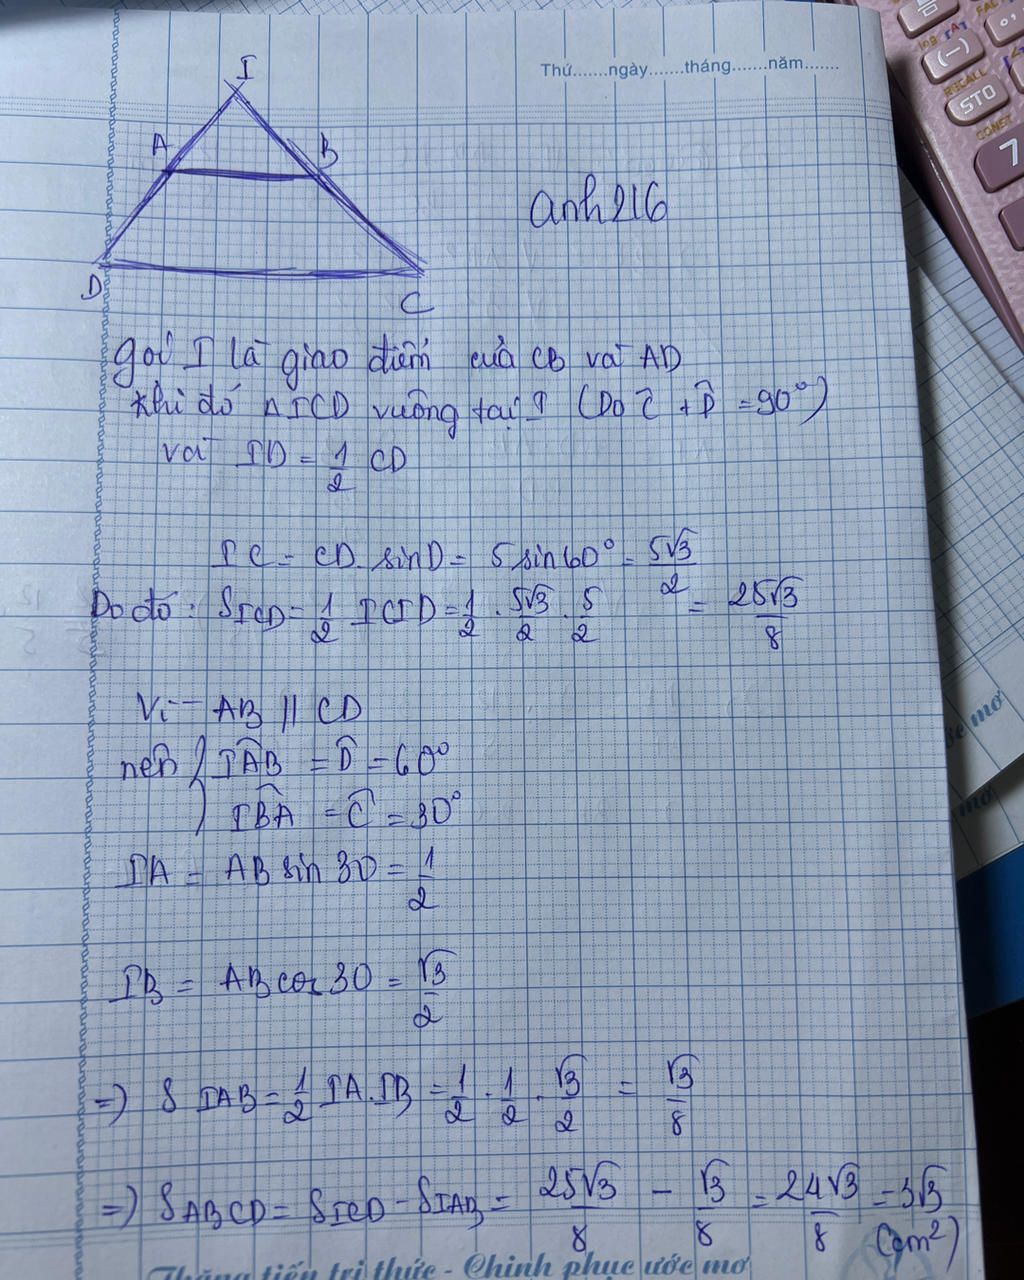 Thứ.......ngày.......tháng.......năm.......
I
A
B
D
C
anh216
gọi I là giao điểm của CB và AD
khi đó ΔICD vuông tại I (Do Ĉ + D̂ = 90°)
và ID = 1/2 CD
IC = CD. sinD = 5 sin60° = 5√3/2
Do đó: S_ICD = 1/2 IC ID = 1/2 . 5√3/2 . 5/2 = 25√3/8
Vì AB // CD
nên { IÂB = D̂ = 60°
IB̂A = Ĉ = 30°
IA = AB sin 30 = 1/2
IB = AB cos 30 = √3/2
=) S IAB = 1/2 IA.IB = 1/2 . 1/2 . √3/2 = √3/8
=) S_ABCD = S_ICD - S_IAB = 25√3/8 - √3/8 = 24√3/8 = 3√3
(cm²)
Thăng tiến tri thức - Chinh phục ước mơ
STO
RECALL
CONST
(-)
7
log